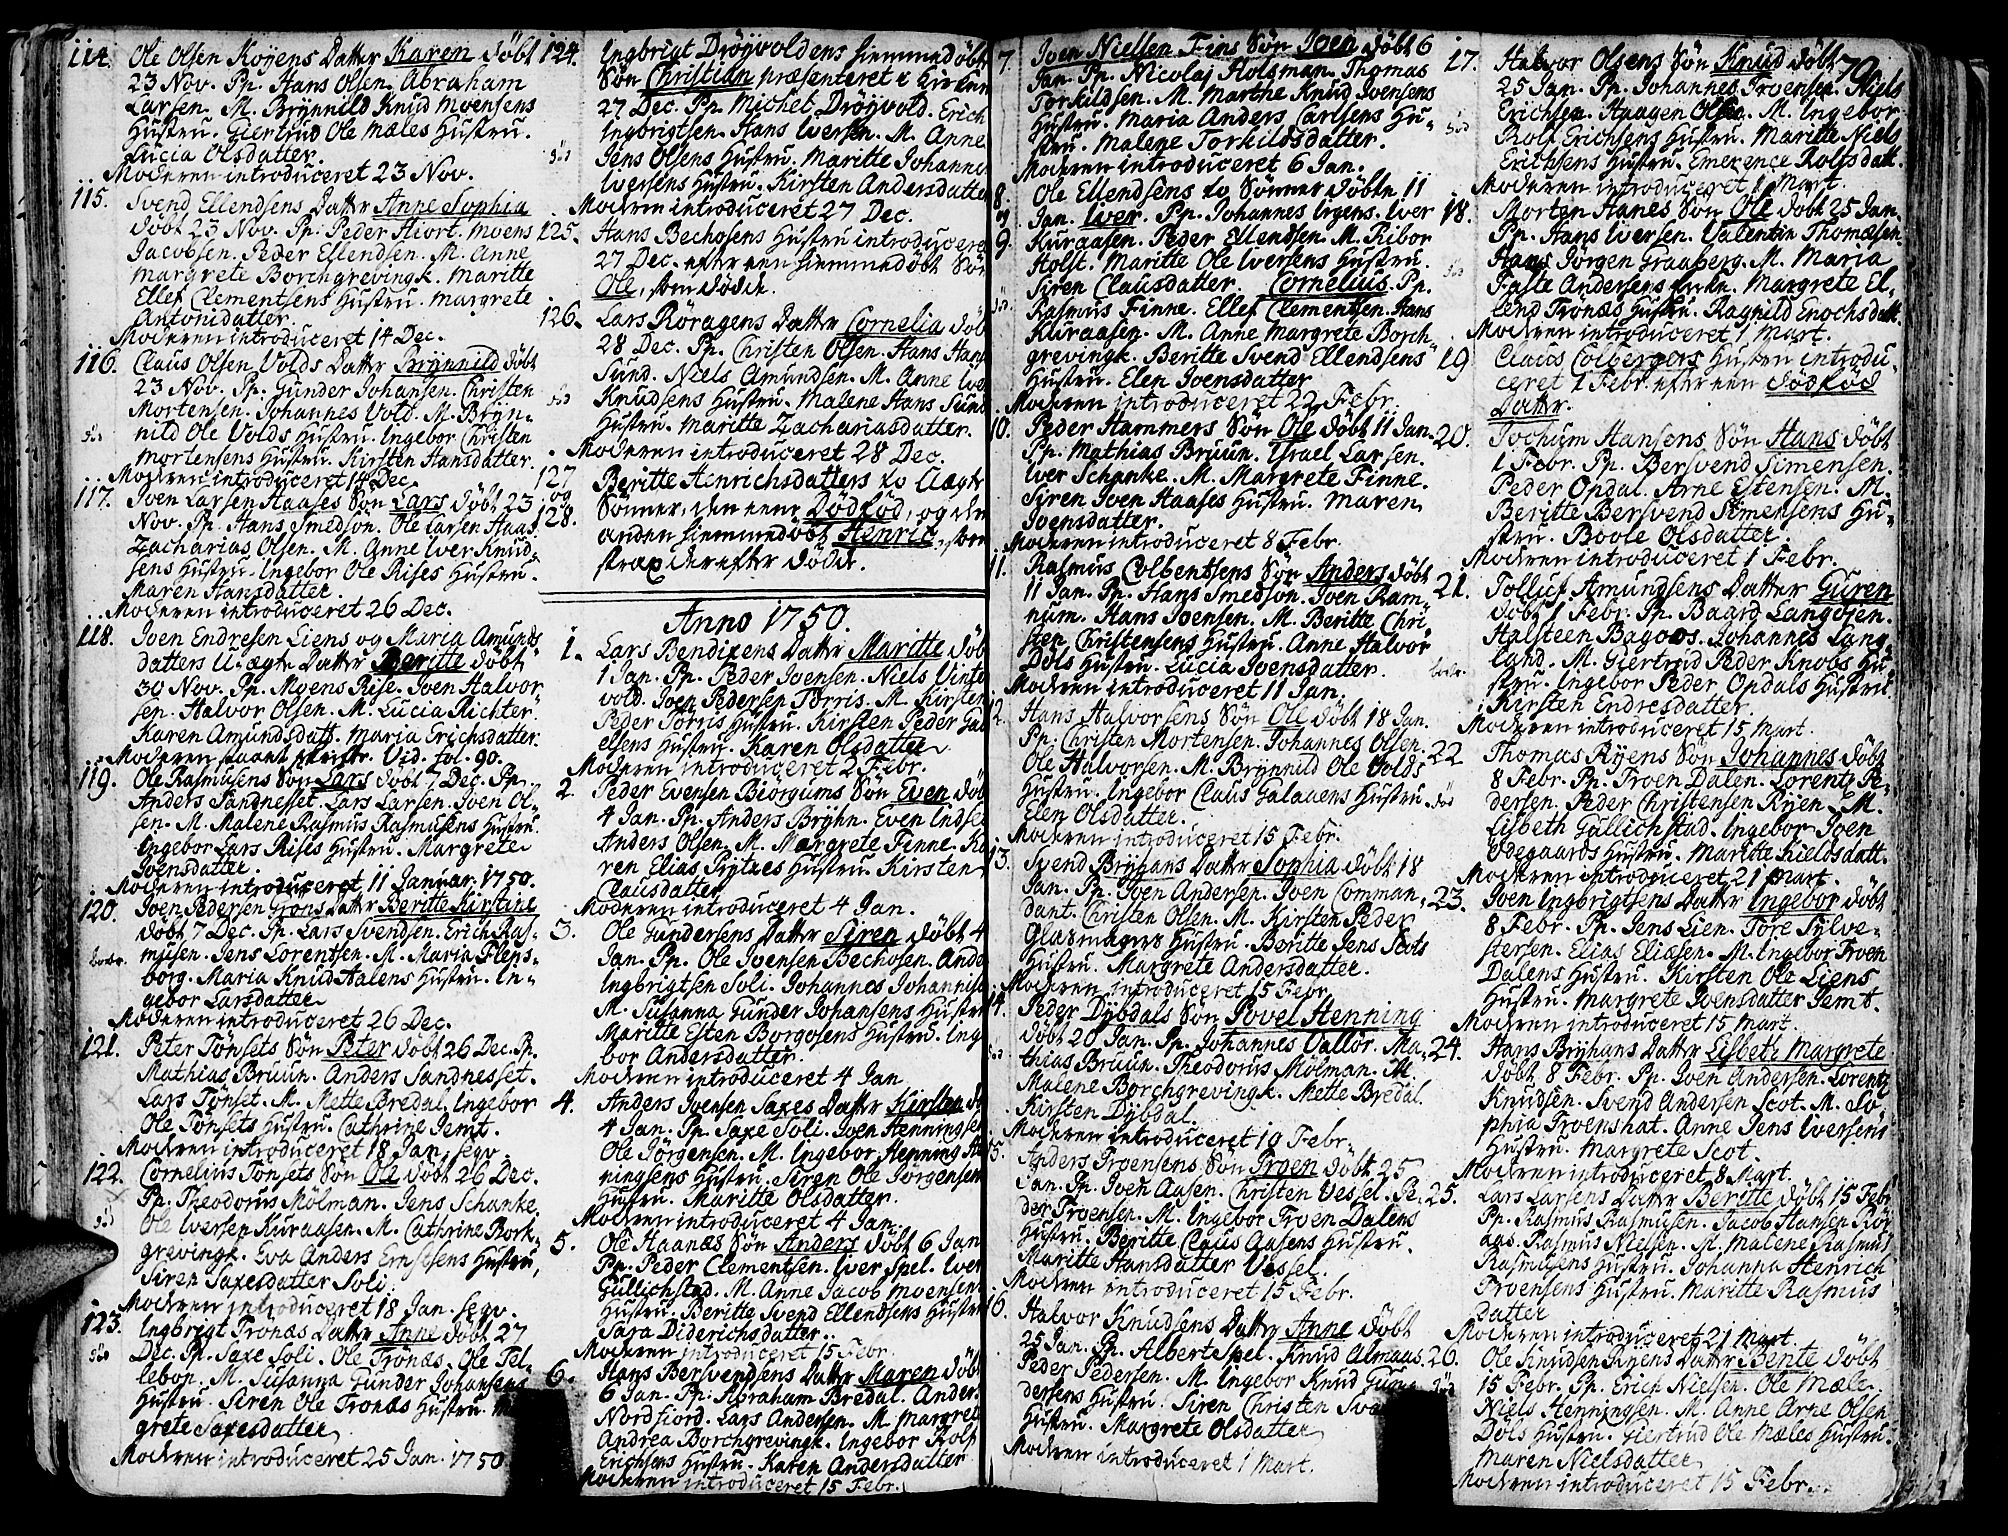 114. Ole Olsen Royens Datter Karen døbt
23 Nov. Pp. Hans Olsen. Abraham
Larsen. M. Brynnild Knud Moensens
Hustru. Giertrud Ole Mæles Hustru.
Lucia Olsdatter.
Moderen introduceret 23 Nov.
115. Svend Ellendsens Datter Anne Sophia
døbt 23 Nov. Pp. Peder Hiort. Moens
Jacobsen. Peder Ellendsen. M. Anne
Margrete Borchgrevingk. Maritte
Ellef Clementsens Hustru. Margrete
Antonidatter.
Moderen introduceret 14 Dec.
116. Claus Olsen Volds Datter Brynnild døbt
23 Nov. Pp. Gunder Johansen. Christen
Mortensen. Johannes Vold. M. Bryn-
nild Ole Volds Hustru. Ingebor Christen
Mortensens Hustru. Kirsten Hansdatter.
Moderen introduceret 14 Dec.
117. Joen Larsen Haases Søn Lars døbt 23
Nov. Pp. Hans Smedson. Ole Larsen Haas.
Zacharias Olsen. M. Anne Iver Knud-
sens Hustru. Ingebor Ole Rises Hustru.
Maren Hansdatter.
Moderen introduceret 26 Dec.
118. Joen Endresen Liens og Maria Amunds
datters U-ægte Datter Beritte døbt
30 Nov. Pp. Moens Rise. Joen Halvor-
sen. Halvor Olsen. M. Lucia Richter.
Karen Amundsdatt. Maria Erichsdatter.
Moderen Vid. fol. 90.
119. Ole Rasmusens Søn Lars døbt 7 Dec. Pp.
Anders Sandnesset. Lars Larsen. Joen Ol-
sen. M. Malene Rasmus Rasmusens Hustru.
Ingebor Lars Rises Hustru. Margrete
Joensdatter.
Moderen introduceret 11 Januar. 1750.
120. Joen Pedersen Grøns Datter Beritte Kirstine
døbt 7 Dec. Pp. Lars Svendsen. Erich Ras-
musen. Jens Lorentsen. M. Maria Flens-
borg. Maria Knud Aalens Hustru. In-
gebor Larsdatter
Moderen introduceret 26 Dec.
121. Peter Tønsets Søn Peter døbt 26 Dec. Pp.
Mathias Bruun. Anders Sandnesset.
Lars Tønset. M. Mette Bredal. Ingebor
Ole Tønsets Hustru. Cathrine Jemt.
Moderen introduceret 18 Jan. seqv.
122. Cornelius Tonsets Søn Ole døbt 26 Dec.
Pp. Theodorus Mölman. Jens Schanke.
Ole Iversen Kuraasen. M. Cathrine Bork-
grevingk. Eva Anders Ernstsens Hustru,
Siren Saxesdatter Soli.
Moderen introduceret 18 Jan. seqv.
123. Ingbrigt Trønæs Datter Anne døbt 27
Dec. Pp. Saxe Soli. Ole Trønæs. Ole Tel-
lebon. M. Susanna Gunder Johansens
Hustru. Siren Ole Tronæs Hustru. Mar
grete Saxesdatter
Moderen introduceret 25 Jan. 1750
124. Ingbrigt Drøyvoldens hiemmedøbt
Søn Christian præsenteret i Kirken
27 Dec. Pp. Michel Drøyvold. Erich
Ingbrigtsen. Hans Iversen. M. Anne
Jens Olsens Hustru. Maritte Johannes
Iversens Hustru. Kirsten Andersdatter
Moderen introduceret 27 Dec.
125. Hans Bechosens Hustru introduceret
27 Dec. efter een hiemmedøbt Søn
Ole, som døde.
126. Lars Röragens Datter Cornelia døbt
28 Dec. Pp. Christen Olsen. Hans Hans
Sund. Niels Amundsen. M. Anne Iver
Knudsens Hustru. Malene Hans Sund
Hustru. Maritte Zachariasdatter.
Moderen introduceret 28 Dec.
127 og 128. Beritte Henrichsdatters to Uægte
Sønner, den eene Dødfød, og den
anden hiemmedøbt Henric, som
strax derefter døde.
Anno 1750.
1. Lars Bendixens Datter Maritte døbt
1 Jan. Pp. Peder Joensen. Niels Vinter
vold. Joen Pedersen Torris. M. Kirsten
Peder Torris Hustru. Kirsten Peder Gab
elsens Hustru. Karen Olsdatter
Moderen introduceret 2 Febr.
2. Peder Evensen Biorgums Søn Even døbt
4 Jan. Pp. Anders Brÿhn. Even Endsen
Anders Olsen. M. Margrete Finne. Ka
ren Elias Prytzes Hustru. Kirsten
Clausdatter
Moderen introduceret 4 Jan.
3. Ole Gundersens Datter Siren døbt 4
Jan. Pp. Ole Joensen Bechosen. Anders
Ingbrigtsen Soli. Johannes Johannis
M. Susanna Gunder Johansens Hustru
Maritte Esten Borgosens Hustru. Inge
bor Andersdatter.
Moderen introduceret 4 Jan
4. Anders Joensen Saxes Datter Kirsten dø
4 Jan. Pp. Saxe Soli. Joen Henningsen
Ole Jörgensen. M. Ingebor Henning He
ningsens Hustru. Siren Ole Jörgensens
Hustru. Maritte Olsdatter.
Moderen introduceret 4 Jan.
5. Ole Haanæs Søn Anders døbt 6 Jan
Pp. Peder Clementsen. Iver Spel. Iver
Gullichstad. M. Anne Jacob Moensens
Hustru. Beritte Svend Ellendsens Hustru
Sara Diderichsdatter.
Moderen introduceret 15 Febr.
6. Hans Bersvendsens Datter Maren døbt
6 Jan. Pp. Abraham Bredal. Anders
Nordfiord. Lars Andersen. M. Margret
Andrea Borchgrevingk. Ingebor Rolf
Erichsens Hustru. Karen Andersdatter
Moderen introduceret 15 Febr.
7. Joen Nielsen Fins Søn Joen døbt 6
Jan. Pp. Nicolaj Holsman. Thomas
Torkildsen. M. Marthe Knud Ivensens
Hustru. Maria Anders Carlsens Hu-
stru. Malene Torkildsdatter.
Moderen introduceret 6 Jan.
8. og 9. Ole Ellendsens to Sønner døbte 11
Jan. Iver. Pp. Johannes Irgens. Iver
Kuraasen. Peder Ellendsen. M. Ribor
Holst. Maritte Ole Iversens Hustru.
Siren Clausdatter. Cornelius. Pp.
Rasmus Finne. Ellef Clementsen. Hans
Kuraasen. M. Anne Margrete Borch-
grevingk. Beritte Svend Ellendsens
Hustru. Elen Joensdatter
Moderen introduceret 22 Febr.
10. Peder Hammers Søn Ole døbt 11 Jan.
Pp. Mathias Bruun. Israel Larsen.
Iver Schanke. M. Margrete Finne.
Siren Joen Haases Hustru. Maren
Joensdatter.
Moderen introduceret 8 Febr.
11. Rasmus Colbentsens Søn Anders døbt
11 Jan. Pp. Hans Smedson. Joen Ram-
num. Hans Joensen. M. Beritte Chri-
sten Christensens Hustru. Anne Halvor
Döls Hustru. Lucia Joensdatter.
Moderen introduceret 11 Jan.
12. Hans Halvorsens Søn Ole døbt 18 Jan.
Pp. Christen Mortensen. Johannes Olsen.
Ole Halvorsen. M. Brynnild Ole Volds
Hustru. Ingebor Claus Galaaens Hustru
Elen Olsdatter.
Moderen introduceret 15 Febr.
13. Svend Bryhans Datter Sophia døbt 18
Jan. Pp. Joen Andersen. Joen Comman-
dant. Christen Olsen. M. Kirsten Peder
Glasmagers Hustru. Beritte Jens Scots
Hustru. Margrete Andersdatter.
Moderen introduceret 15 Febr.
14. Peder Dybdals Søn Povel Henning
døbt 20 Jan. Pp. Johannes Vallör. Ma-
thias Bruun. Theodorus Molman. M.
Malene Borchgrevingk. Mette Bredal.
Kirsten Dybdal.
Moderen introduceret 19 Febr.
15. Anders Troensens Søn Troen døbt 25
Jan. Pp. Joen Aasen. Christen Vessel. Pe-
der Troensen. M. Ingebor Troen Dalens
Hustru. Beritte Claus Aasens Hustru.
Maritte Hansdatter Vessel.
Moderen introduceret 15 Febr.
16. Halvor Knudsens Datter Anne døbt
25 Jan. Pp. Albert Spel. Knud Almaas.
Peder Pedersen. M. Ingebor Knud Gun
dersens Hustru. Siren Christen
Hustru. Margrete Olsdatter
Moderen introduceret 1 Mart.
70
17. Halvor Olsens Søn Knud døbt
25 Jan. Pp. Johannes Troensen. Niels
Erichsen. Haagen Olsen. M. Ingebor
Rolf Erichsens Hustru. Maritte Niels
Erichsens Hustru. Emerence Rolfsdatt.
Moderen introduceret 1 Mart.
18. Morten Hanes Søn Ole døbt 25 Jan.
Pp. Hans Iversen. Valentin Thomæsen.
Hans Jörgen Graaberg. M. Maria
Faste Andersens Enke. Margrete El-
lend Trönæs Hustru. Ragnild Enochsdatt.
Moderen introduceret 1 Mart.
19 Claus Colbergers Hustru introdu-
ceret 1 Febr. efter een dødfød
Datter.
20. Jochum Hansens Søn Hans døbt
1 Febr. Pp. Bersvend Simensen.
Peder Opdal. Arne Estensen. M.
Beritte Bersvend Simensens Hu-
stru. Boole Olsdatter.
Moderen introduceret 1 Febr.
21. Tolluf Amundsens Datter Guren
døbt 1 Febr. Pp. Baard Langøien.
Halsteen Bagoos. Johannes Lang-
land. M. Giertrud Peder Knobs Hu-
stru. Ingebor Peder Opdals Hustru.
Kirsten Endresdatter.
Moderen introduceret 15 Mart.
22 Thomas Ryens Søn Johannes døbt
8 Febr. Pp. Troen Dalen. Lorentz Pe-
dersen. Peder Christensen Ryen. M.
Lisbeth Gullichstad. Ingebor Joen
Ødegaards Hustru. Maritte Kieldsdatt.
Moderen introduceret 21 Mart.
23. Joen Ingbrigtsens Datter Ingebor døbt
8 Febr. Pp. Jens Lien. Tore Sylve-
stersen. Elias Eliæsen. M. Ingebor Troen
Dalens Hustru. Kirsten Ole Liens
Hustru. Margrete Joensdatter Jemt.
Moderen introduceret 15 Mart.
24. Hans Bryhans Datter Lisbeth Margrete
døbt 8 Febr. Pp. Joen Andersen. Lorentz
Knudsen. Svend Andersen Scot. M. So-
phia Troenshat. Anne Jens Iversens
Hustru. Margrete Scot.
Moderen introduceret 8 Mart.
25. Lars Larsens Datter Beritte døbt 15 Febr
Pp. Rasmus Rasmusen. Jacob Hansen Rör-
aas. Rasmus Nielsen. M. Malene Rasmus
Rasmusens Hustru. Johanna Henrich
Troensens Hustru. Maritte Rasmus
datter
Moderen introduceret 21 Mart.
26. Ole Knudsen Ryens Datter Bente døbt
15 Febr. Pp. Erich Nielsen. Ole Mæle.
Niels Henningsen. M. Anne Arne Olsen
Döls Hustru. Giertrud Ole Mæles Hustru.
Maren Nielsdatter
Moderen introduceret 15 Febr.